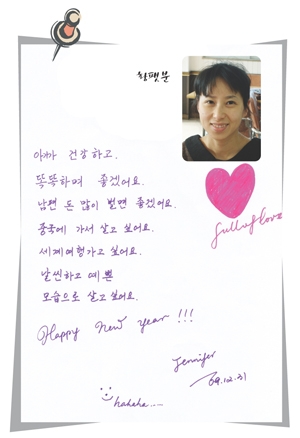 황펫분
아이가 건강하고.
똑똑하며 좋겠어요.
남편 돈 많이 벌면 좋겠어요.
중국에 가서 살고 싶어요.
세계여행가고 싶어요.
날씬하고 예쁜
모습으로 살고 싶어요.
full of love
Happy New year !!!
Jennifer
09.12.31
hahaha....